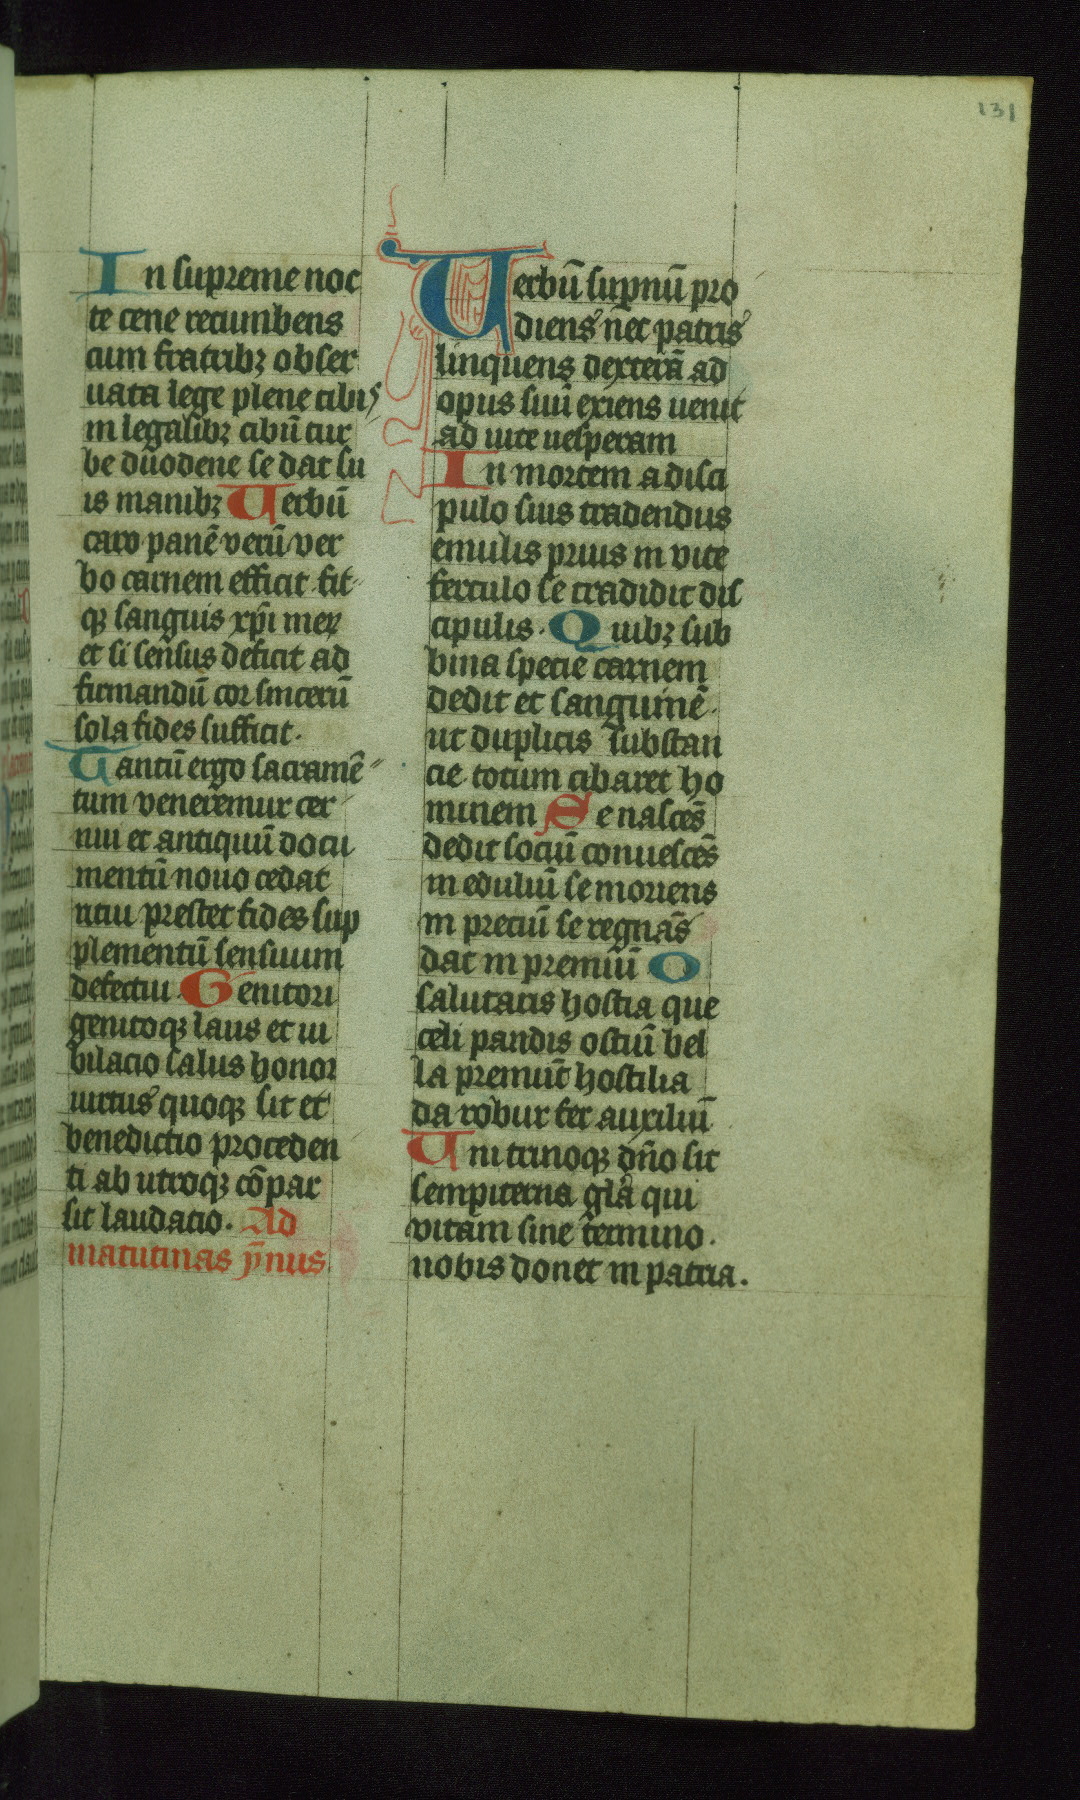 131
In supreme noc
te cene recumbens
cum fratribꝫ obser
uata lege plene cibis
in legalibꝫ cibū tur
be duodene se dat su
is manibꝫ Uerbū
caro panē verū ver
bo carnem efficit fit
qꝫ sanguis xp̄i merꝫ
et si sensus deficit ad
firmandū cor sincerū
sola fides sufficit.
Tantū ergo sacramē
tum veneremur cer
nui et antiquū docu
mentū nouo cedat
ritui prestet fides sup
plementū sensuum
defectui Genitori
genitoqꝫ laus et iu
bilacio salus honor
uirtus quoqꝫ sit et
benedictio proceden
ti ab utroqꝫ cōpar
sit laudatio. Ad
matutinas ȳnus
Uerbū supnū pro
diens nec patris
linquens dexterā ad
opus suū exiens uenit
ad uite uesperam
In mortem a disci
pulo suis tradendus
emulis prius in vite
ferculo se tradidit dis
cipulis. Quibꝫ sub
bina specie carnem
dedit et sanguinē.
ut duplicis substan
cie totum cibaret ho
minem Se nascēs
dedit sociū conuescēs
in eduliū se moriens
in preciū se regnās
dat in premiū O
salutaris hostia que
celi pandis ostiū bel
la premūt hostilia
da robur fer auxiliū
Uni trinoqꝫ dn̄o sit
sempiterna glā qui
vitam sine termino.
nobis donet in patria.